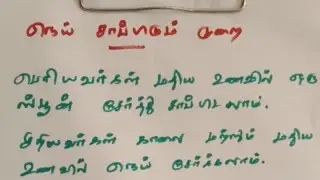 நெய் சாப்பிடும் முறை
பெரியவர்கள் மதிய உணவில் ஒரு
ஸ்பூன் சேர்த்து சாப்பிடலாம்.
சிறியவர்கள் காலை மற்றும் மதிய
உணவில் நெய் சேர்க்கலாம்.